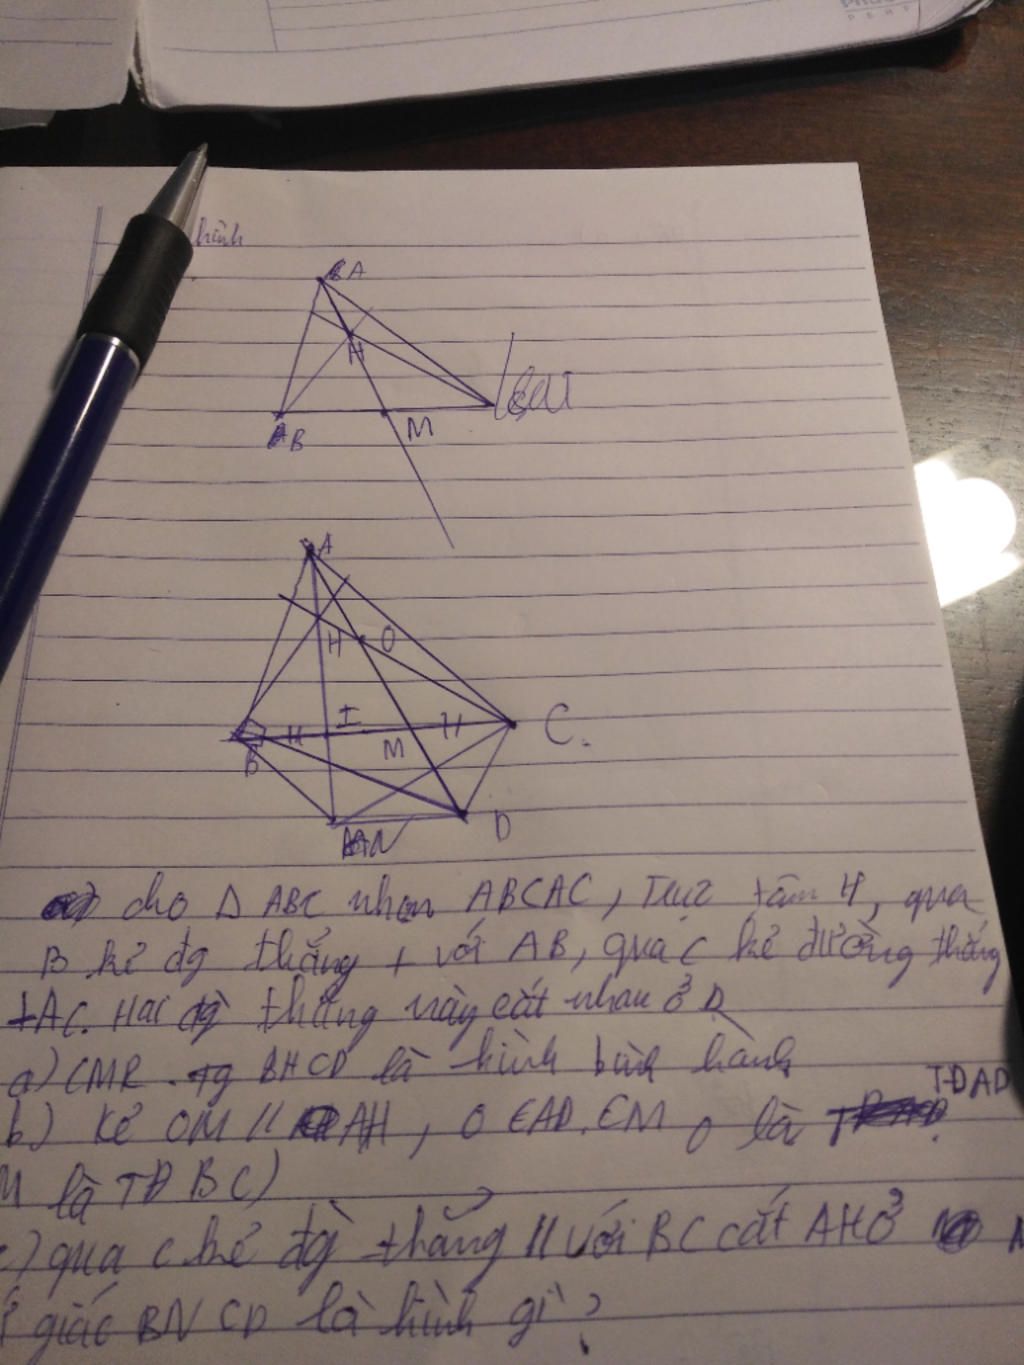 hình
A
H
B
M
A
H
O
I
M
C
B
N
D
cho Δ ABC nhọn ABCAC, Trực tâm H, qua
B kẻ đg thẳng ⊥ với AB, qua C kẻ đường thẳng
⊥AC. Hai đg thẳng này cắt nhau ở D
a) CMR tg BHCD là hình bình hành
b) Kẻ OM // AH, O ∈ AD. CM O là TĐ AD
M là TĐ BC)
c) qua C kẻ đg thẳng // với BC cắt AH ở N
giác BNCD là hình gì?